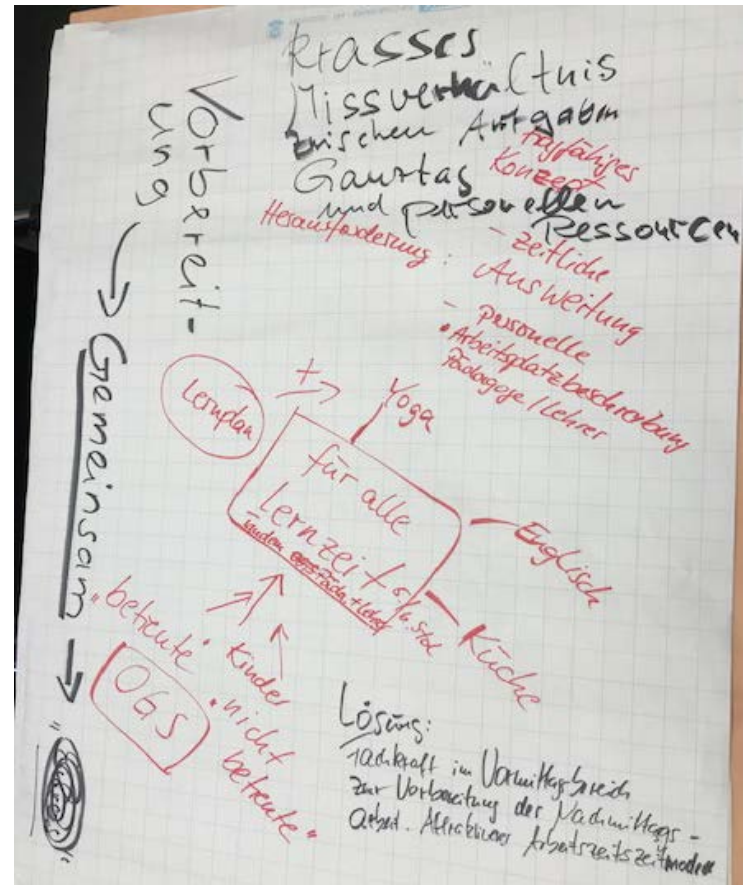 Krasses
Missverhältnis
zwischen Aufgaben
Ganztag
und personellen
Ressourcen
tragfähiges
Konzept
Herausforderung:
- zeitliche
Ausweitung
- personelle
• Arbeitsplatzbeschreibung
Pädagoge/Lehrer
Vorbereit-
ung
→ Gemeinsam →
Lernplan
+
Yoga
für alle
Lernzeit
Englisch
Küche
"betreute"
Kinder
"nicht
betreute"
OGS
Lösung:
Fachkraft im Vormittagsbereich
zur Vorbereitung der Nachmittags-
arbeit. Attraktiveres Arbeitszeitszeitmodell